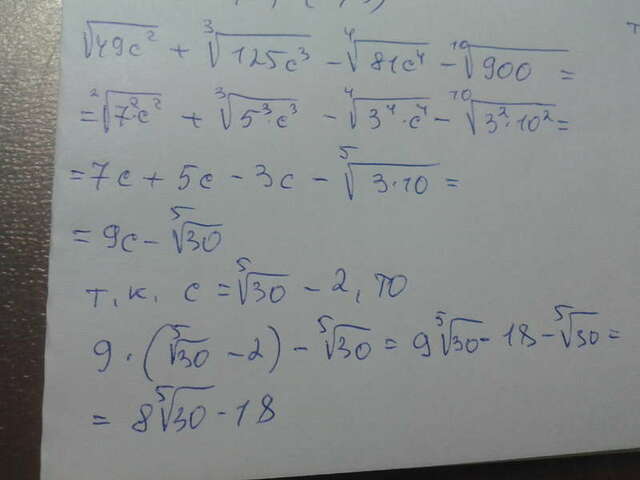 √49c² + ³√125c³ − ⁴√81c⁴ − ¹⁰√900 =
= ²√7²·c² + ³√5³·c³ − ⁴√3⁴·c⁴ − ¹⁰√3²·10² =
= 7c + 5c − 3c − ⁵√3·10 =
= 9c − ⁵√30
т.к. c = ⁵√30 − 2, то
9·(⁵√30 − 2) − ⁵√30 = 9⁵√30 − 18 − ⁵√30 =
= 8⁵√30 − 18